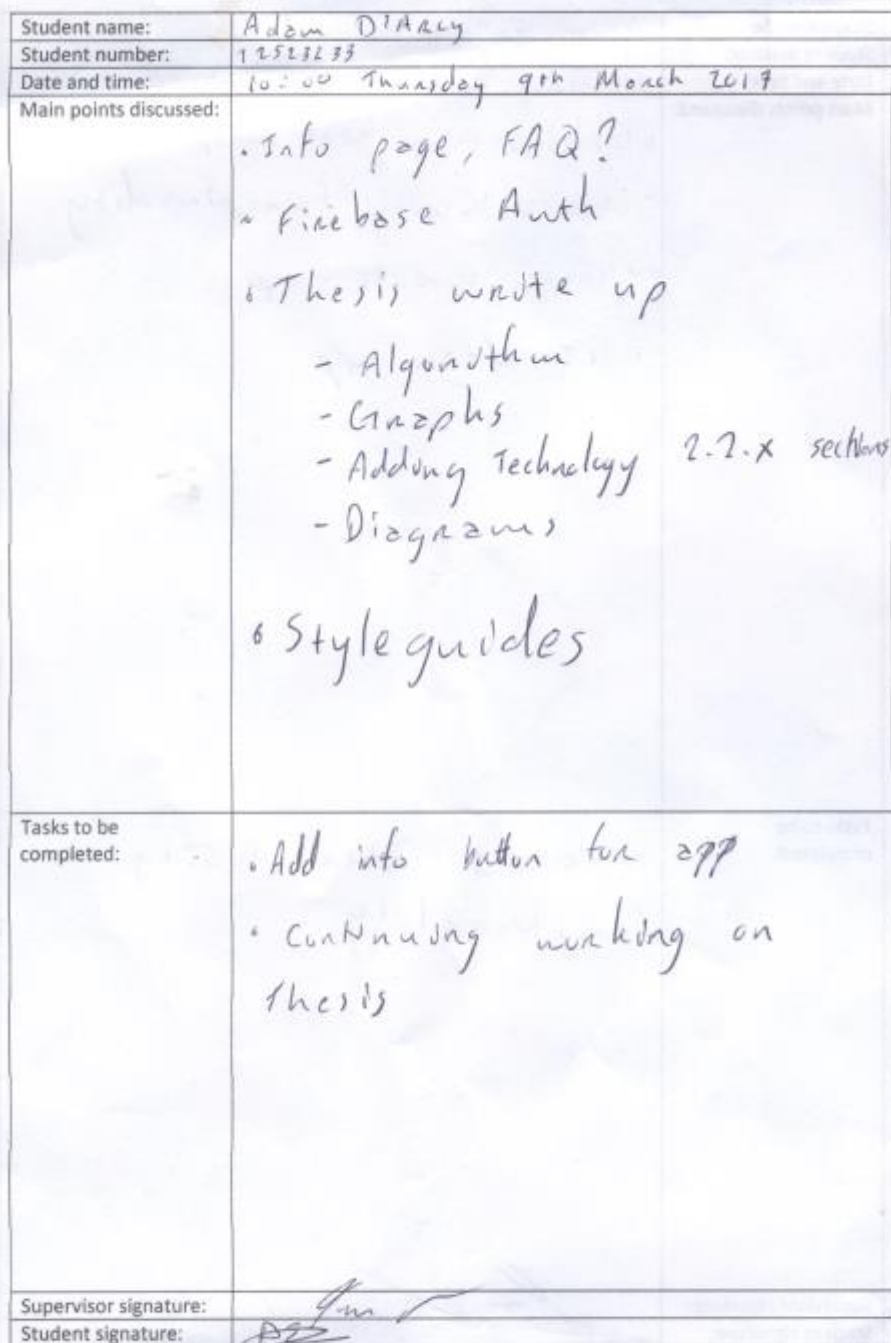 Student name: Adam D'Arcy
Student number: 12523233
Date and time: 10:00 Thursday 9th March 2017
Main points discussed:
• Info page, FAQ?
• Firebase Auth
• Thesis write up
- Algorithm
- Graphs
- Adding Technology 2.2.x sections
- Diagrams
• Style guides
Tasks to be
completed:
• Add info button for app
• Continuing working on
Thesis
Supervisor signature:
Student signature: